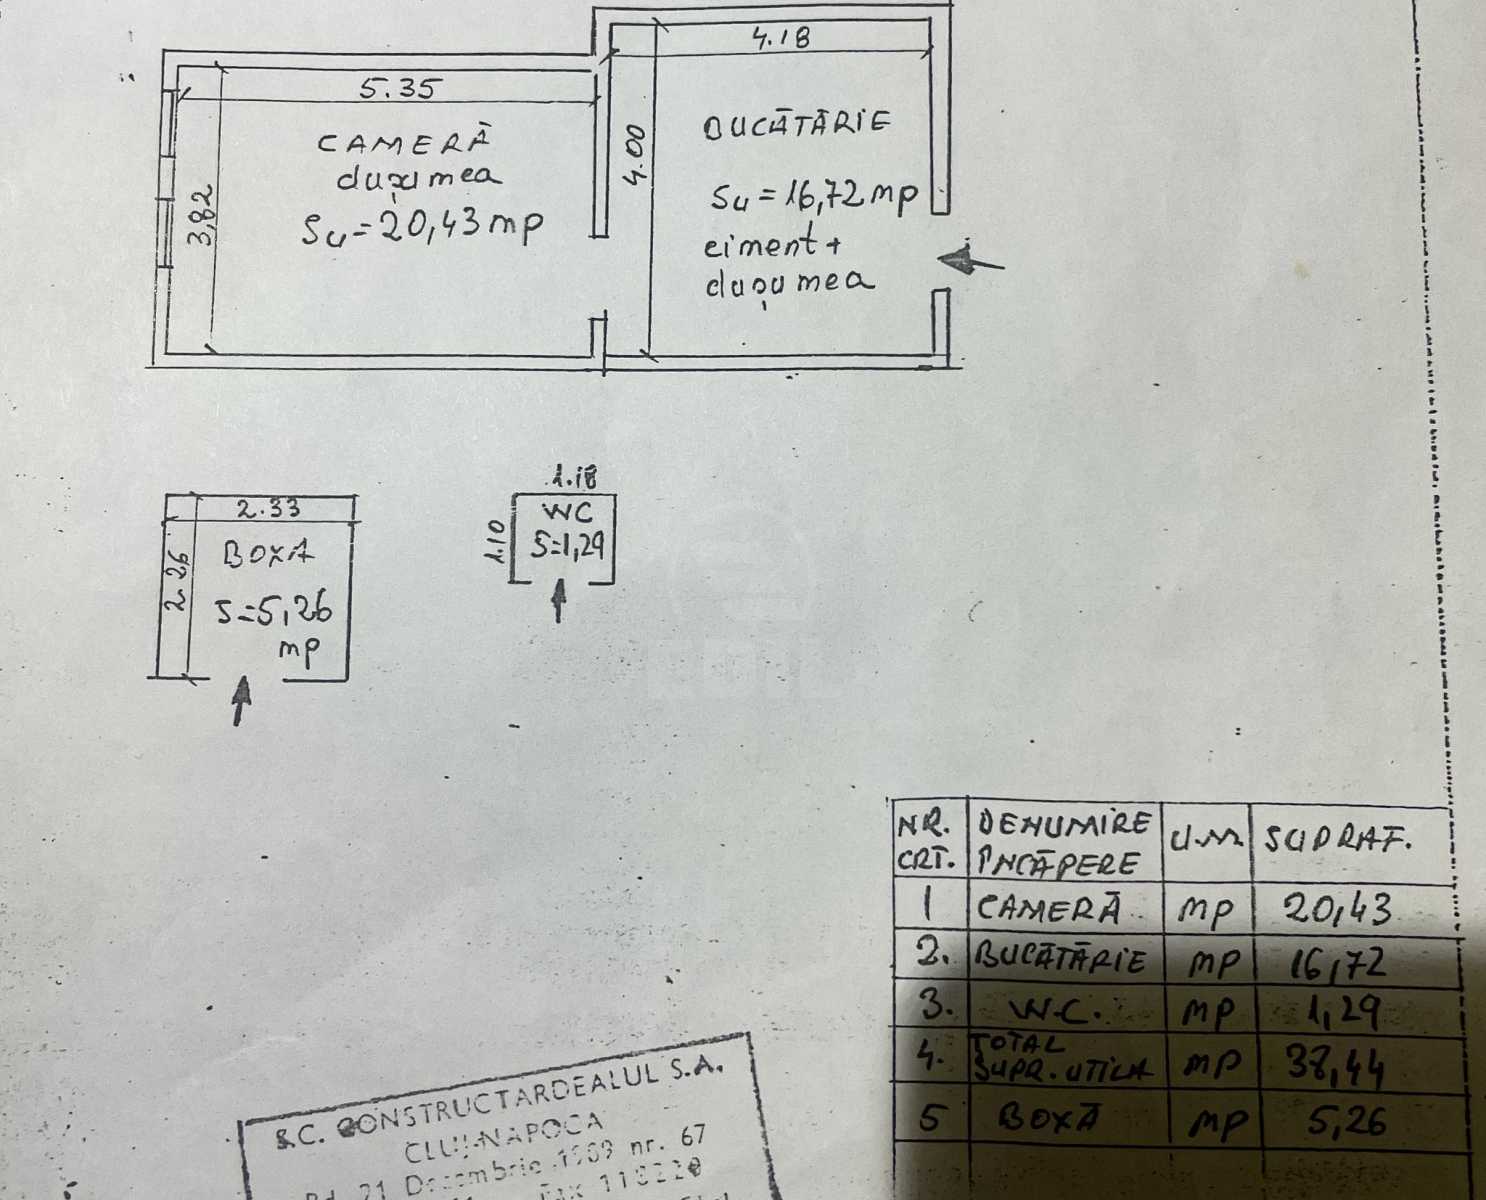 4.18
5.35
CAMERĂ
dușumea
Su=20,43 mp
3,82
4.00
BUCĂTĂRIE
Su=16,72 mp
ciment+
dușumea
2.33
2.26
BOXA
S=5,26
mp
1.18
1.10
WC
S=1,29
NR. CRT. DENUMIRE ÎNCĂPERE U.M SUPRAF.
1 CAMERĂ mp 20,43
2. BUCĂTĂRIE mp 16,72
3. W.C. mp 1,29
4. TOTAL SUPR. UTILA mp 38,44
5 BOXĂ mp 5,26
S.C. CONSTRUCTARDEALUL S.A.
CLUJ-NAPOCA
Bd. 21 Decembrie 1989 nr. 67
Fax 118220